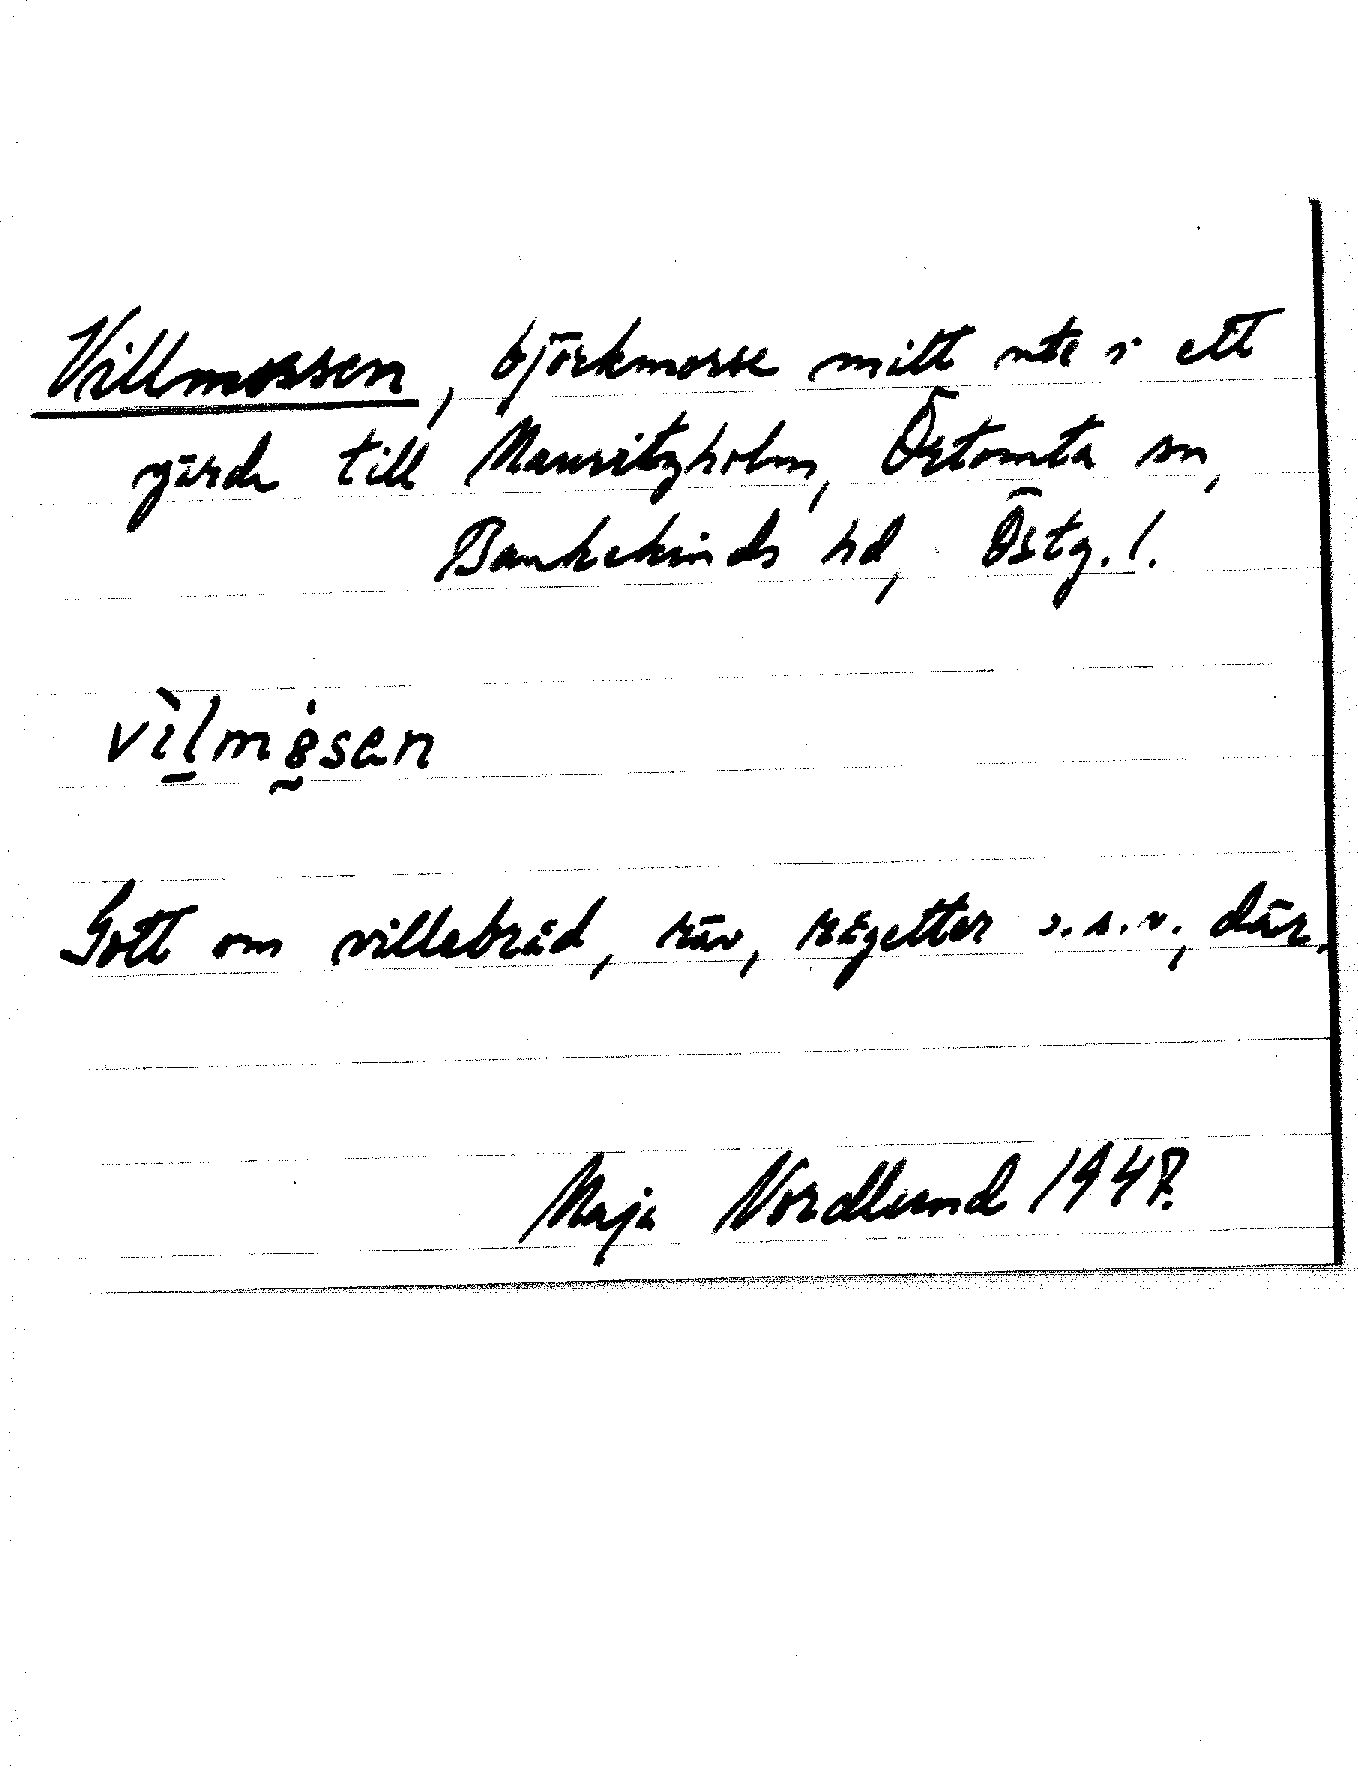 Villmossen, björkmosse mitt ute i ett
gärde till Mauritzholm, Örtomta sn,
Bankekinds hd, Östg. l.
vìlmȯsen
Gott om villebråd, räv, rågetter o.s.v., där.
Maja Nordlund 1947.